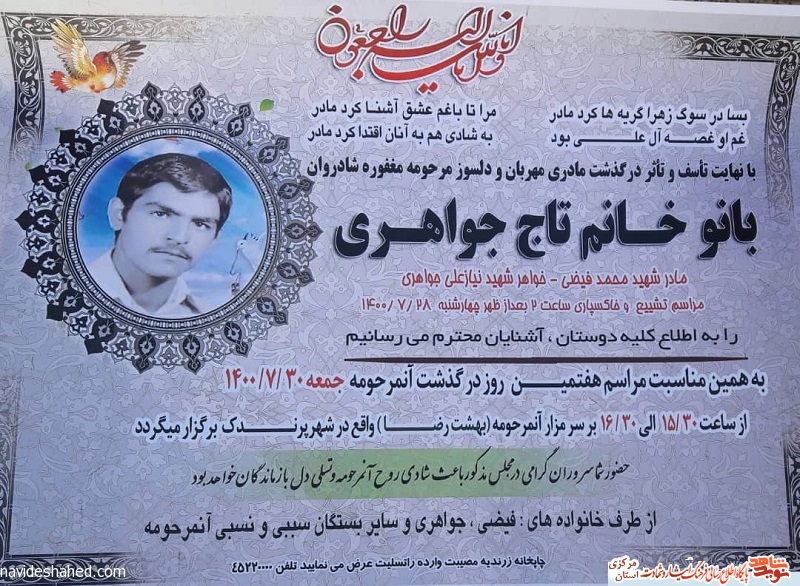 انا لله و انا الیه راجعون
بسا در سوگ زهرا گریه ها کرد مادر
مرا تا باغم عشق آشنا کرد مادر
غم او غصه آل علی بود
به شادی هم به آنان اقتدا کرد مادر
با نهایت تأسف و تأثر درگذشت مادری مهربان و دلسوز مرحومه مغفوره شادروان
بانو خانم تاج جواهری
مادر شهید محمد فیضی - خواهر شهید نیازعلی جواهری
مراسم تشییع و خاکسپاری ساعت ۲ بعداز ظهر چهارشنبه ۱۴۰۰/۷/۲۸
را به اطلاع کلیه دوستان ، آشنایان محترم می رسانیم
به همین مناسبت مراسم هفتمین روز درگذشت آنمرحومه جمعه ۱۴۰۰/۷/۳۰
از ساعت ۱۵/۳۰ الی ۱۶/۳۰ بر سر مزار آنمرحومه (بهشت رضا) واقع در شهر پرندک برگزار میگردد
حضور شما سروران گرامی در مجلس مذکور باعث شادی روح آنمرحومه و تسلی دل بازماندگان خواهد بود
از طرف خانواده های : فیضی ، جواهری و سایر بستگان سببی و نسبی آنمرحومه
چاپخانه زرندیه مصیبت وارده را تسلیت عرض می نمایید تلفن ۴۵۲۲۰۰۰۰
navideshahed.com
نوید شاهد
استان مرکزی